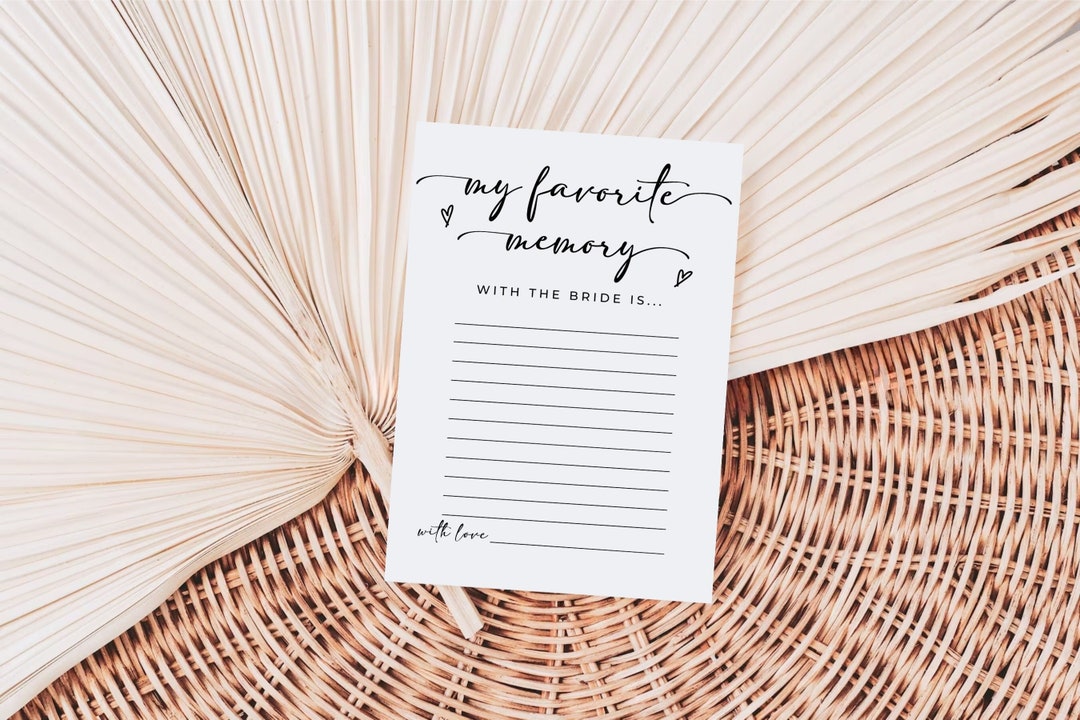 my favorite
memory
WITH THE BRIDE IS...
with love